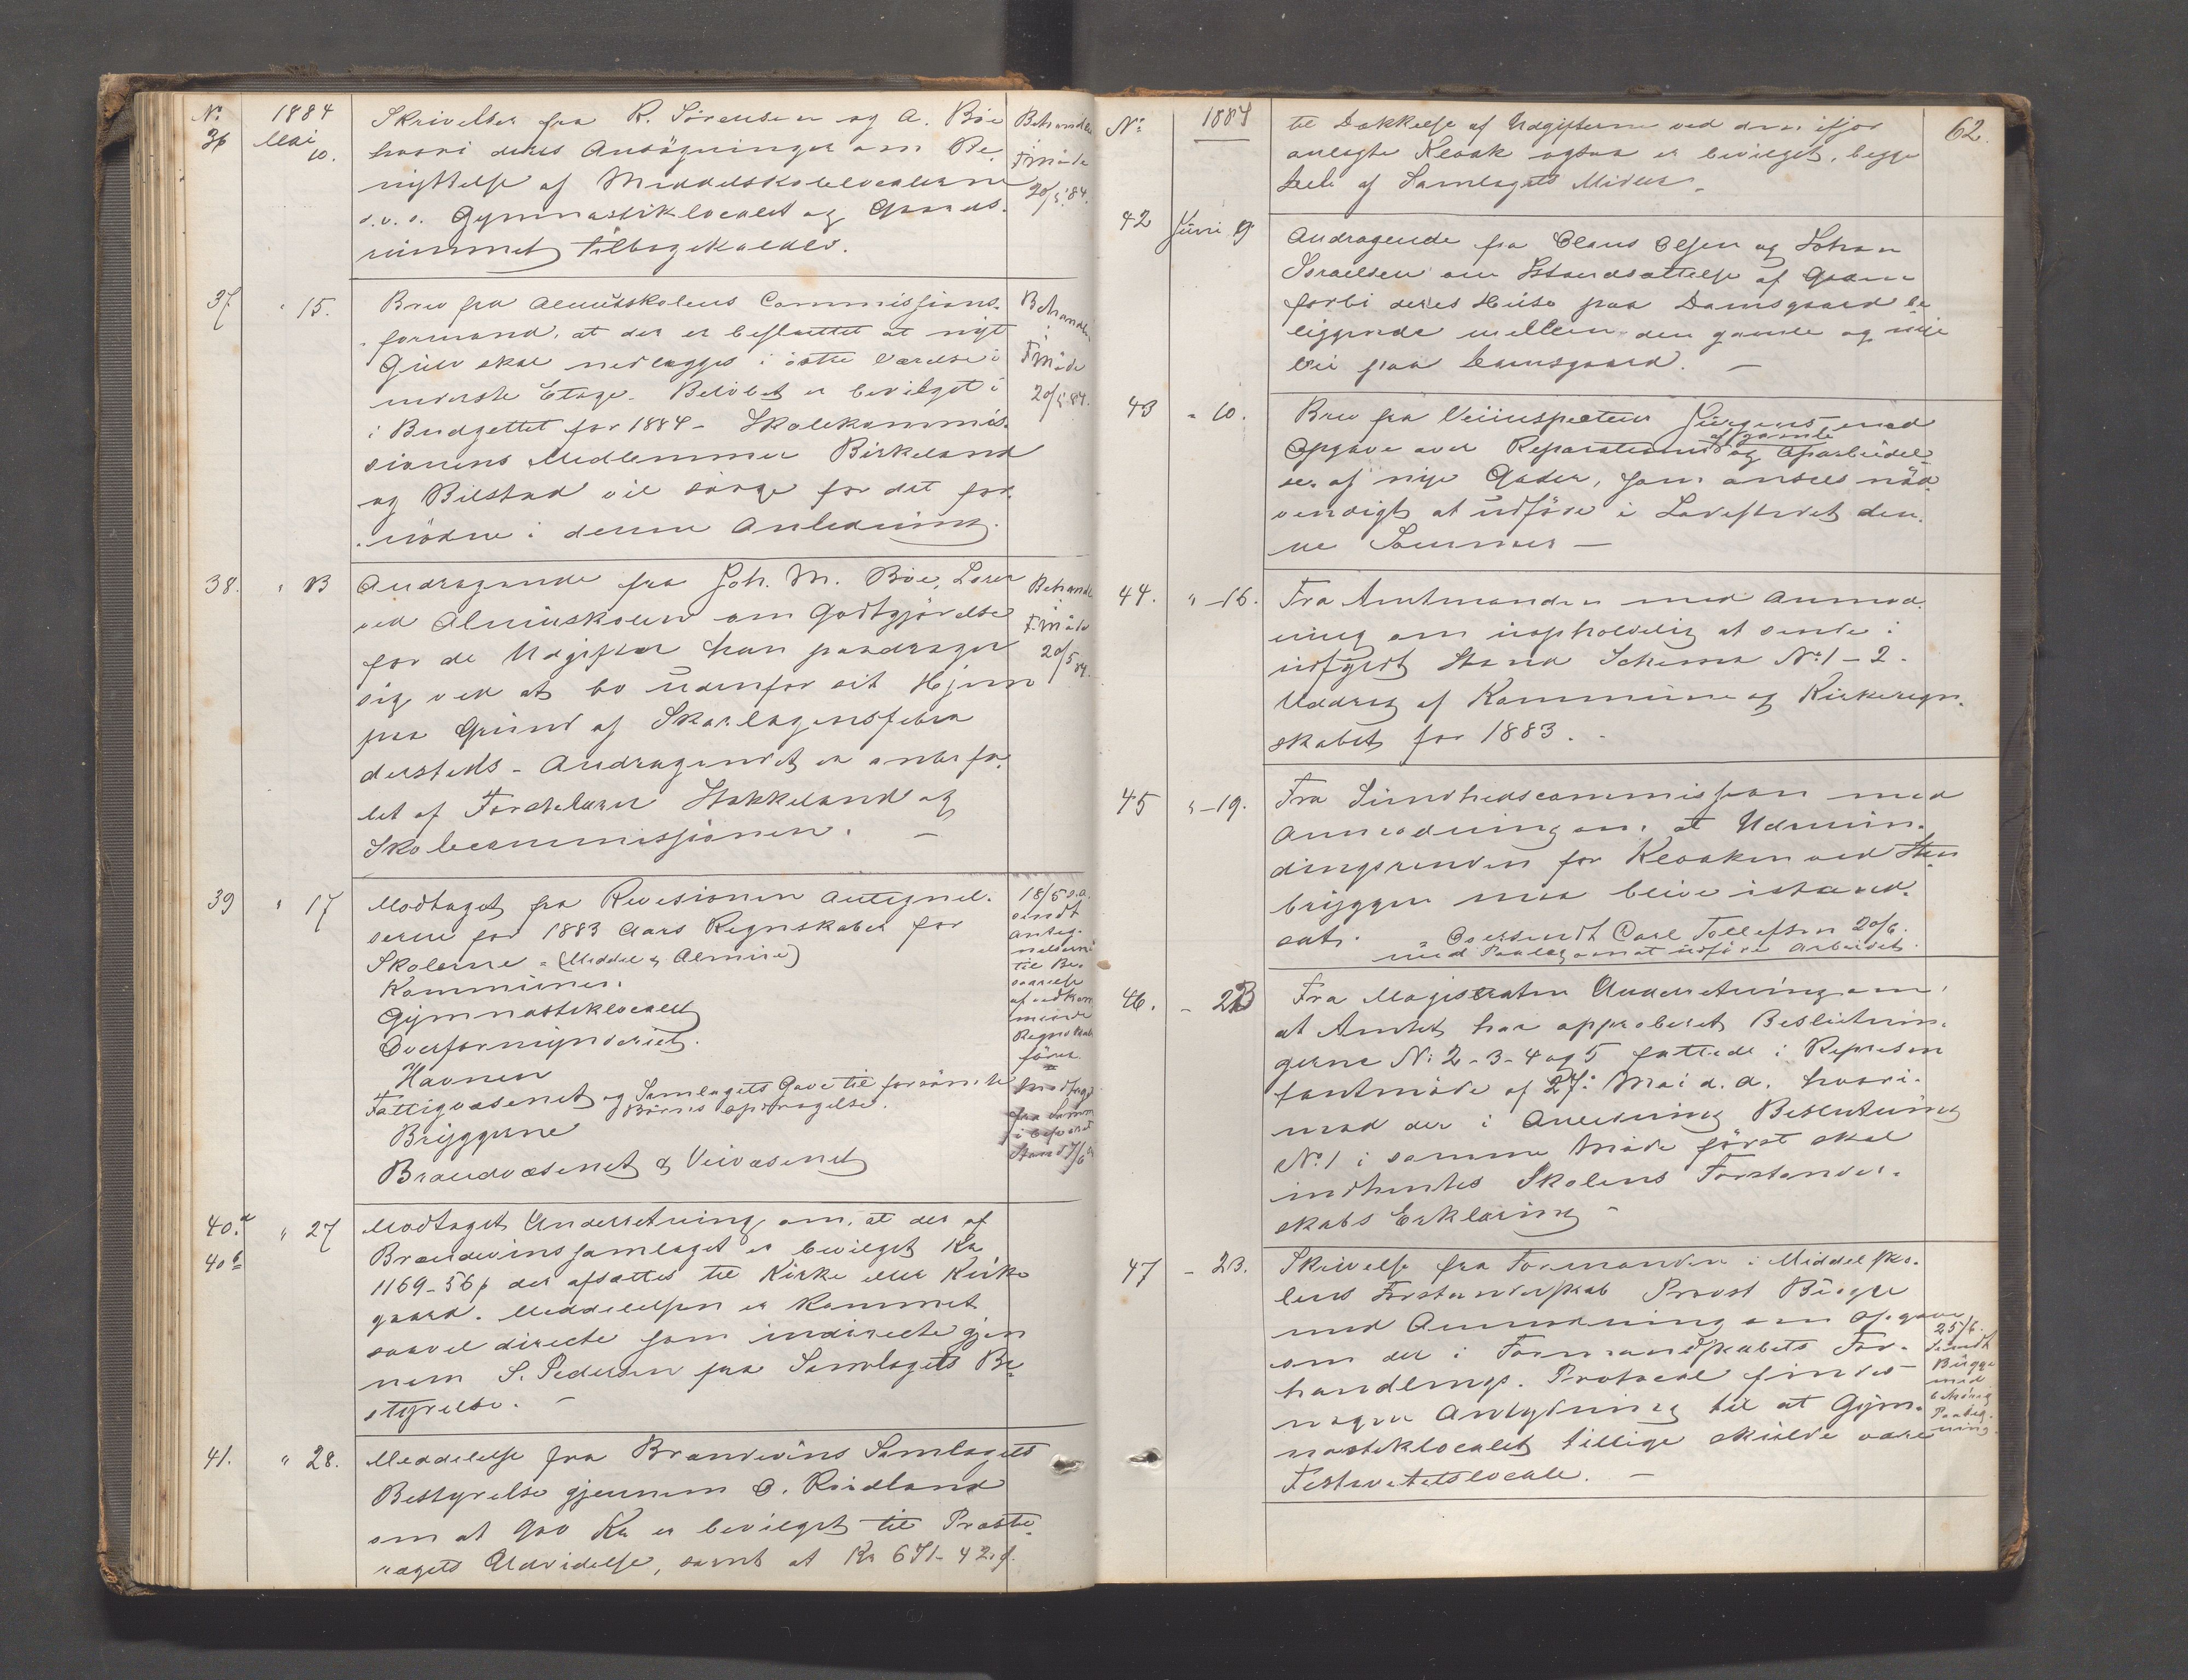 No. 1884
36 Mai 10. Skrivelser fra R. Sörensen og A. Böe
hvori deres Ansögninger om Be-
nyttelse af Middelskolelocalerne
d.v.s. Gymnastiklocalet og Gaards-
rummet tilbagekaldes.
Behandlet
i
F.Möde
20/5 84.
37 " 15. Brev fra Almueskolens Commissions-
formand, at det er besluttet at nyt
Gulv skal nedlægges i östre Værelse i
nederste Etage. Belöbet er bevilget i
i Budgettet for 1884 - Skolekommis-
sionens Medlemmer Birkeland
og Bilstad vil sörge for det for-
nödne i denne Anledning.
Behandlet
i
F.Möde
20/5 84.
38. " 13 Andragende fra Joh. M. Böe, Lærer
ved Almueskolen om Godtgjörelse
for de Udgifter han paadrager
sig ved at bo udenfor sit Hjem
paa Grund af Skarlagensfeber
dersteds - Andragendet er anbefa-
let af Förstelærer Stokkeland og
Skolecommissionen. -
Behandlet
i
F.Möde
20/5 84.
39 " 17 Modtaget fra Revisionen Antegnel-
serne for 1883 Aars Regnskaber for
Skolerne - (Middel & Almue)
Kommunen.
Gymnastiklocalet
Overformynderiet.
Havnen
Fattigvæsenet og Samlagets Gave til forsömte
Börns Opdragelse.
Bryggerne
Brandvæsenet & Veivæsenet
18/5 d.a.
sendt
Anteg-
nelserne
til Be-
svarelse
af vedkom-
mende
Regnskabs-
förer.
Modtaget
fra Samme
i besvaret
Stand 7/6
40.a " 27 Modtaget Underretning om, at der af
40b Brændevinssamlaget er bevilget Kr
1169-56 der afsættes til Kirke eller Kirke-
gaard. Meddelelsen er kommet
saavel directe som indirecte gjen-
nem S. Pedersen fra Samlagets Be-
styrelse. -
41. " 28. Meddelelse fra Brændevins Samlagets
Bestyrelse gjennem O. Rindland
om at 900 Kr er bevilget til Præste-
ragets Udvidelse, samt at Kr 671-42
No. 1884 62.
til Dækkelse af Udgifterne ved den ifjor
anlagte Kloak ogsaa er bevilget, begge
Dele af Samlagets Midler.
42 Juni 9 Andragende fra Claus Olsen og Johan
Israelsen om Istandsættelse af Gaden
forbi deres Huse paa Damsgaard be-
liggende mellem den gamle og nye
Vei paa Damsgaard. -
43 " 10. Brev fra Veiinspecteur Jürgens, med
Opgave over Reparationer af gamle og Oparbeidel-
se af nye Gader, som ansees nöd-
vendigt at udföre i Ladestedet den-
ne Sommer -
44. " - 16. Fra Amtmanden med Anmod-
ning om uopholdelig at sende i
udfyldt Stand Schema No. 1 - 2.
Uddrag af Kommune og Kirkeregn-
skabet for 1883. -
45 " - 19. Fra Sundhedscommission med
Anmodning om, at Udmun-
dingsrenden for Kloaken ved Sten-
bryggen maa blive istand-
sat. - Oversendt Carl Tollefsen 20/6.
med Paalæg om at udföre Arbeidet.
46. - 23 Fra Magistraten Underretning om,
at Amtet har approberet Beslutnin-
gerne No. 2 - 3 - 4 og 5 fattede i Repræsen-
tantmöde af 27. Mai d.a. hvori-
mod der i Anledning Beslutning
No. 1 i samme Möde först skal
indhentes Skolens Forstander-
skabs Erklæring -
47 - 23. Skrivelse fra Formanden i Middelsko-
lens Forstanderskab Provst Bugge
med Anmodning om Opgave
om der i Formandskabets For-
handlings-Protocol findes
nogen Antydning til at Gym-
nastiklocalet tillige skulde være
Festivitetslocale. -
25/6.
sendt
Bugge
med
behörig
Paateg-
ning.